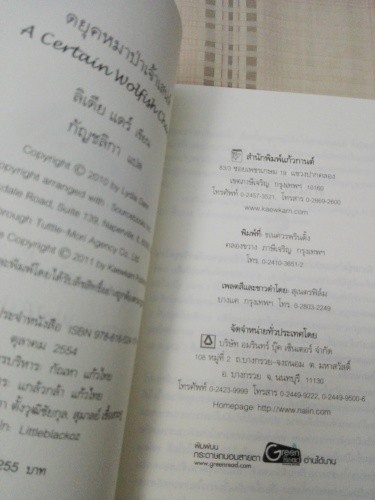 ดยุคหมาป่าเจ้าเสน่ห์
A Certain Wolfish Charm
ลิเดีย แดร์ เขียน
กัญชลิกา แปล
Copyright © 2010 by Lydia Dare
copyright arranged with Sourcebooks
Road, Suite 139, Naperville
hrough Tuttle-Mori Agency Co., Ltd.
Copyright © 2011 by Kaewkarn
ประจำหนังสือ ISBN 978-616
ตุลาคม 2554
กัณหา แก้วไทย
แกล้วกล้า แก้วไทย
ตั้งวุฒิชัยกุล, สุมาลย์
Littleblackoz
255 บาท
สำนักพิมพ์แก้วกานต์
63/3 ซอยเพชรเกษม 19 แขวงปากคลอง
เขตภาษีเจริญ กรุงเทพฯ 10160
โทรศัพท์ 0-2457-3521, โทรสาร 0-2869-2600
www.kaewkarn.com
พิมพ์ที่: ธเนศวรพริ้นติ้ง
คลองขวาง ภาษีเจริญ กรุงเทพฯ
โทร. 0-2413-3651-2
เพลตสีและขาวดำโดย: สุเนตรฟิล์ม
บางแค กรุงเทพฯ โทร. 0-2803-2249
จัดจำหน่ายทั่วประเทศโดย
บริษัท อมรินทร์ บุ๊ค เซ็นเตอร์ จำกัด
108 หมู่ที่ 2 ถ.บางกรวย-จงถนอม ต.มหาสวัสดิ์
อ.บางกรวย จ.นนทบุรี 11130
โทรศัพท์ 0-2423-9999 โทรสาร 0-2449-9222, 0-2449-9500-6
Homepage: http://www.naiin.com
พิมพ์บน
กระดาษถนอมสายตา Green Read อ่านได้นาน
www.greenread.com